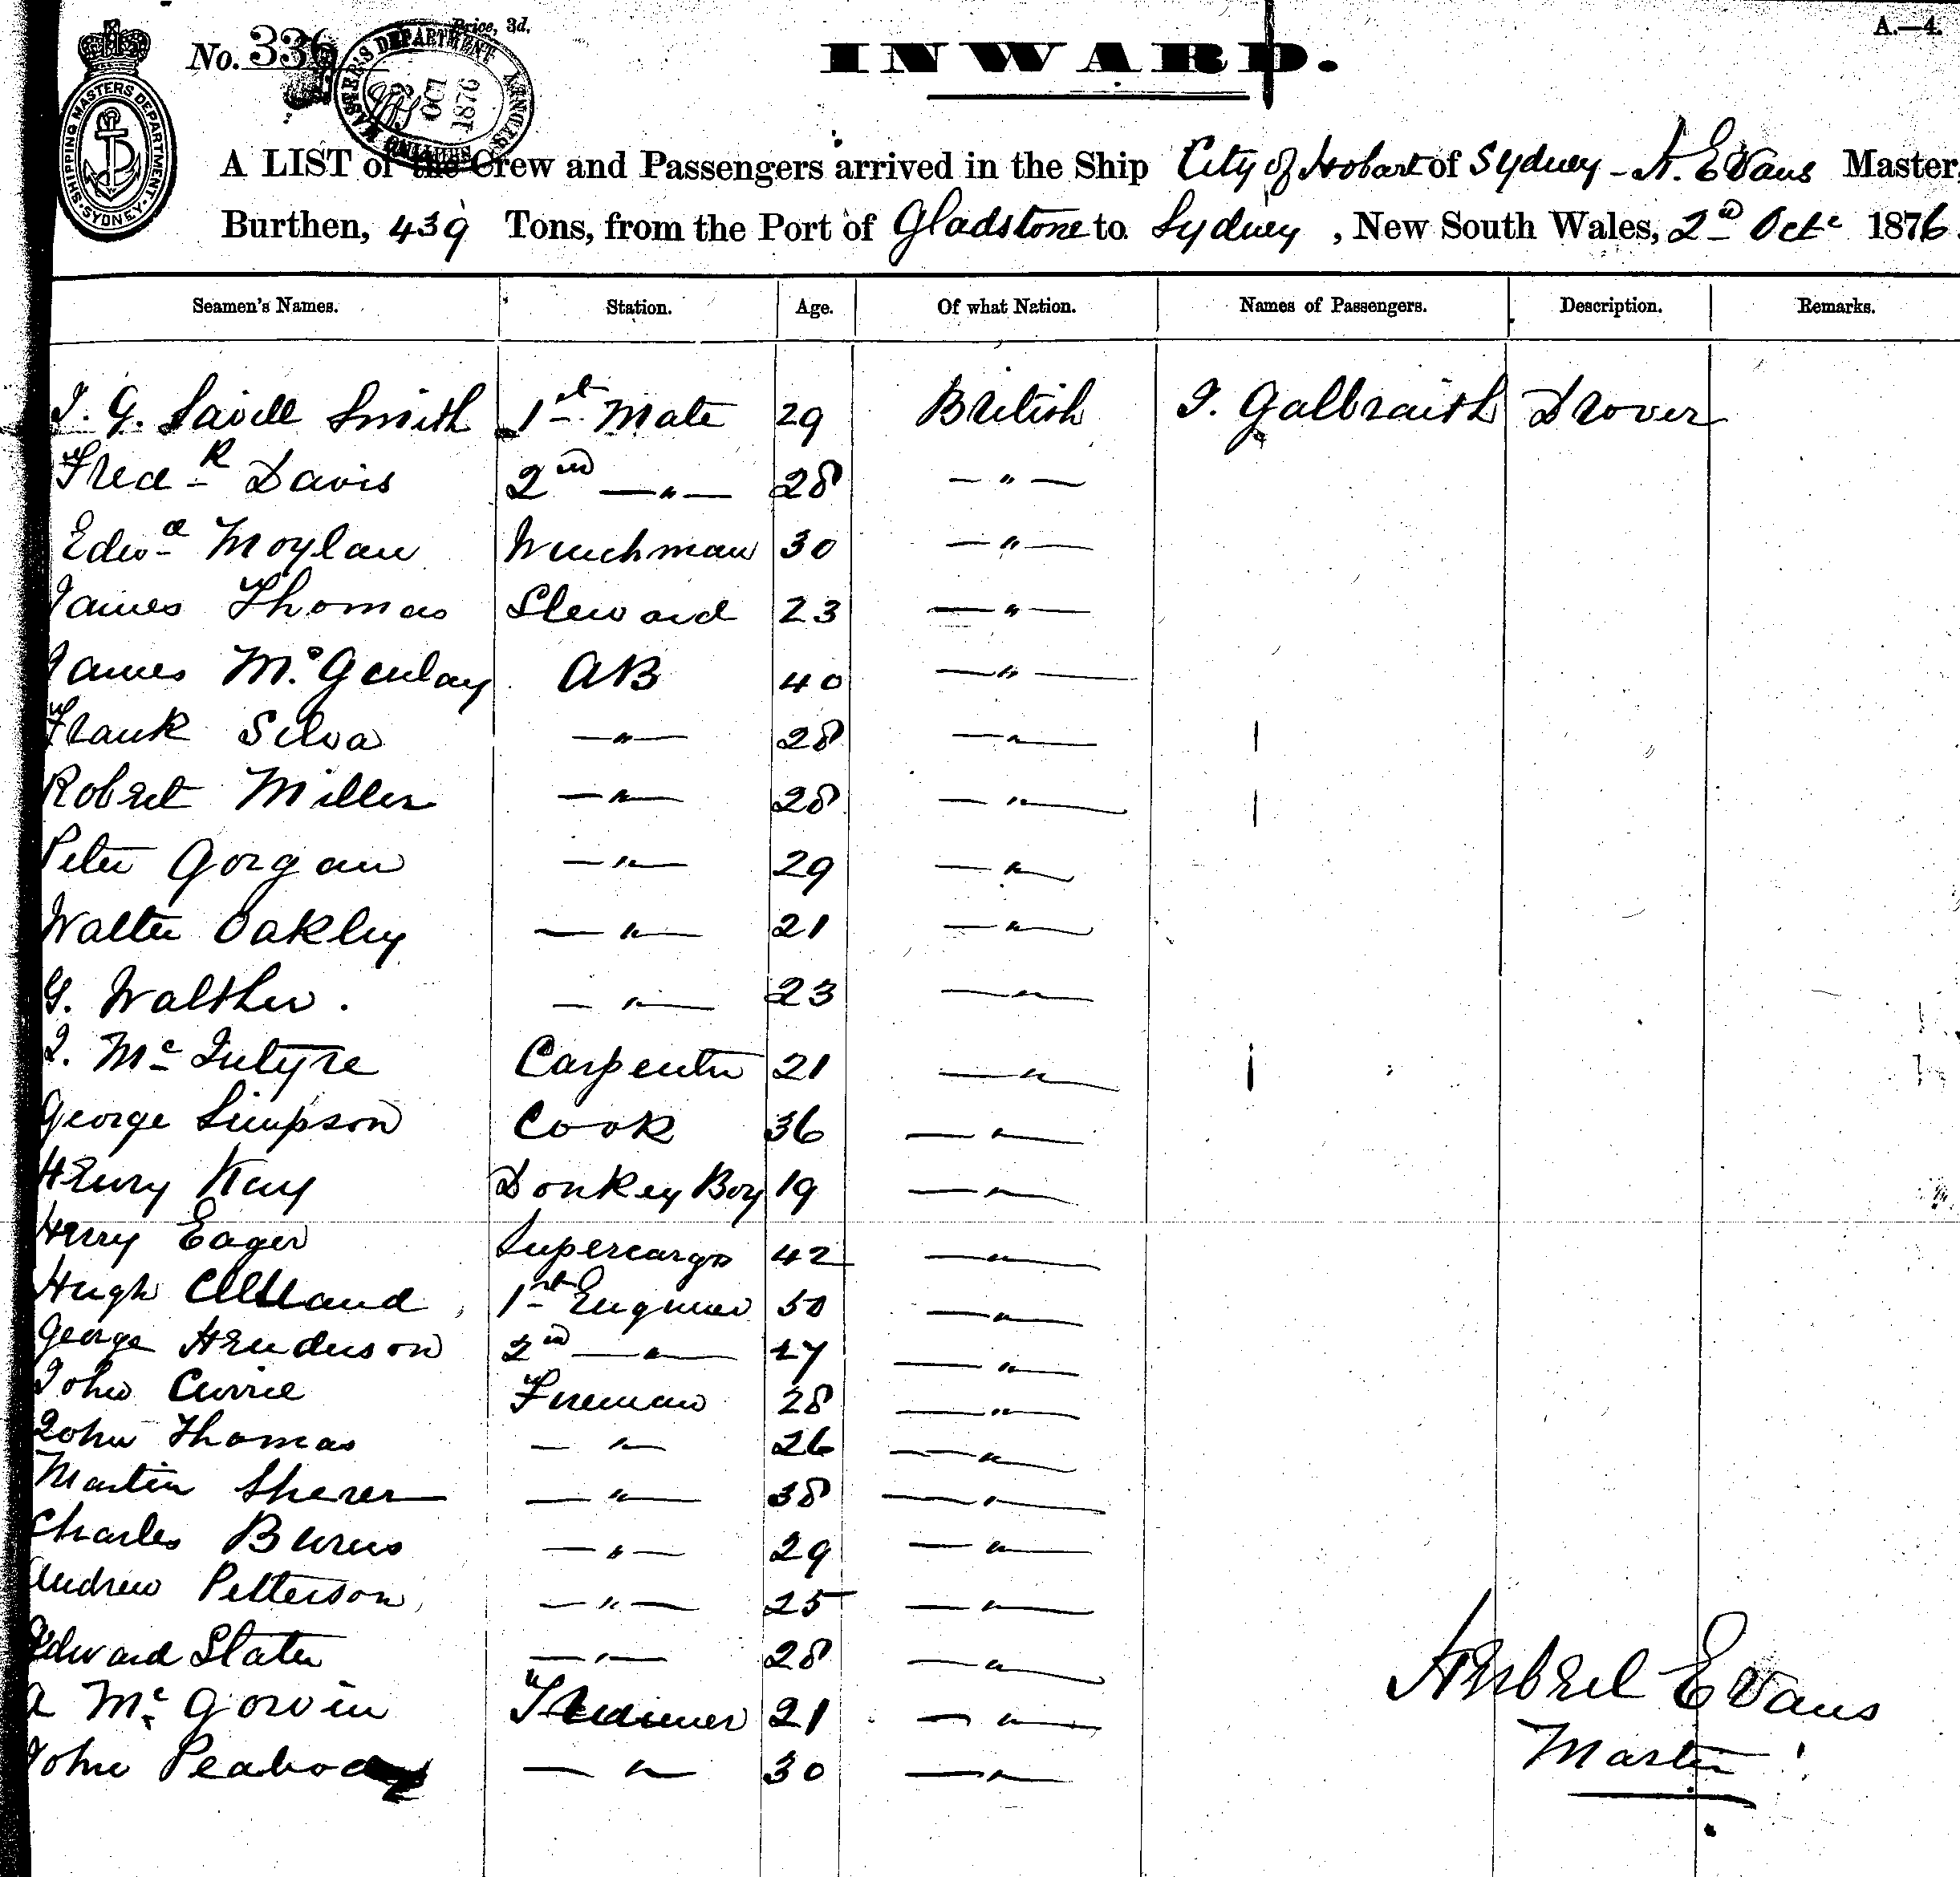 A.—4.
No. 336
Price, 3d.
SHIPPING MASTER'S DEPARTMENT
OCT
1876
SHIPPING MASTERS DEPARTMENT. SYDNEY.
INWARD.
A LIST of the Crew and Passengers arrived in the Ship City of Hobart of Sydney - H. Evans Master,
Burthen, 439 Tons, from the Port of Gladstone to Sydney, New South Wales, 2nd Oct 1876.
Seamen's Names. Station. Age. Of what Nation. Names of Passengers. Description. Remarks.
J. G. Savell Smith 1st Mate 29 British J. Galbraith Drover
Fredk Davis 2nd —"— 28 —"—
Edwd Moylan Winchman 30 —"—
James Thomas Steward 23 —"—
James McGenlay AB 40 —"—
Frank Silva —"— 28 —"—
Robert Miller —"— 28 —"—
Peter Gorgan —"— 29 —"—
Walter Oakley —"— 21 —"—
G. Walther. —"— 23 —"—
J. McIntyre Carpenter 21 —"—
George Simpson Cook 36 —"—
Henry Kay Donkey Boy 19 —"—
Henry Eager Supercargo 42 —"—
Hugh 1st Engineer 50 —"—
George Henderson 2nd —"— 27 —"—
John Currie Fireman 28 —"—
John Thomas —"— 26 —"—
Martin Sherer —"— 38 —"—
Charles Burns —"— 29 —"—
Andrew Petterson —"— 25 —"—
Edward Slater —"— 28 —"—
A McGorvin Trimmer 21 —"—
John Peabody —"— 30 —"—
Herbert Evans
Master